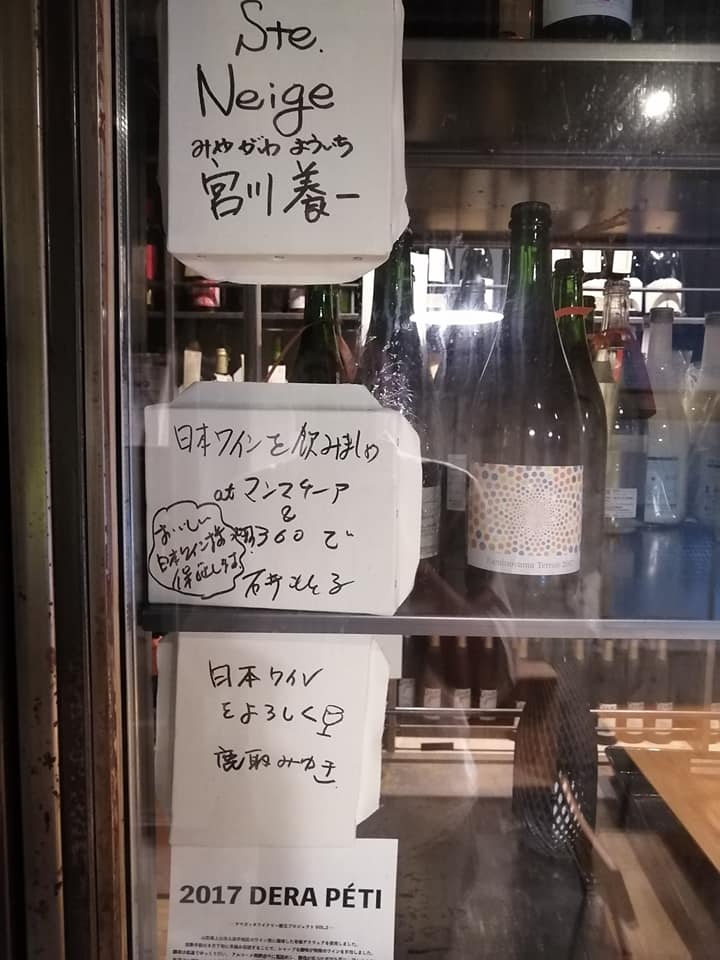 Ste.
Neige
みやがわ よういち
宮川 養一
日本ワインを飲みましょ
at マンマチーア
&
翔360 で
おいしい
日本ワイン
保証します
石井もと子
日本ワイン
をよろしく
鹿取みゆき
Kaminoyama Terroir 2017
2017 DERA PÉTI